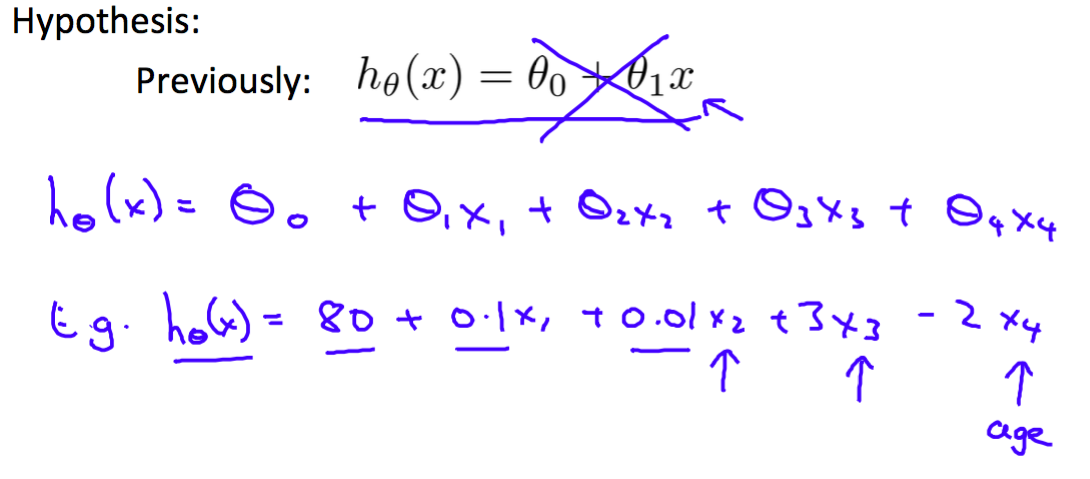 Hypothesis:
Previously: hθ(x) = θ₀ + θ₁x
hθ(x) = θ₀ + θ₁x₁ + θ₂x₂ + θ₃x₃ + θ₄x₄
E.g. hθ(x) = 80 + 0.1x₁ + 0.01x₂ + 3x₃ - 2x₄
↑ ↑ ↑
age